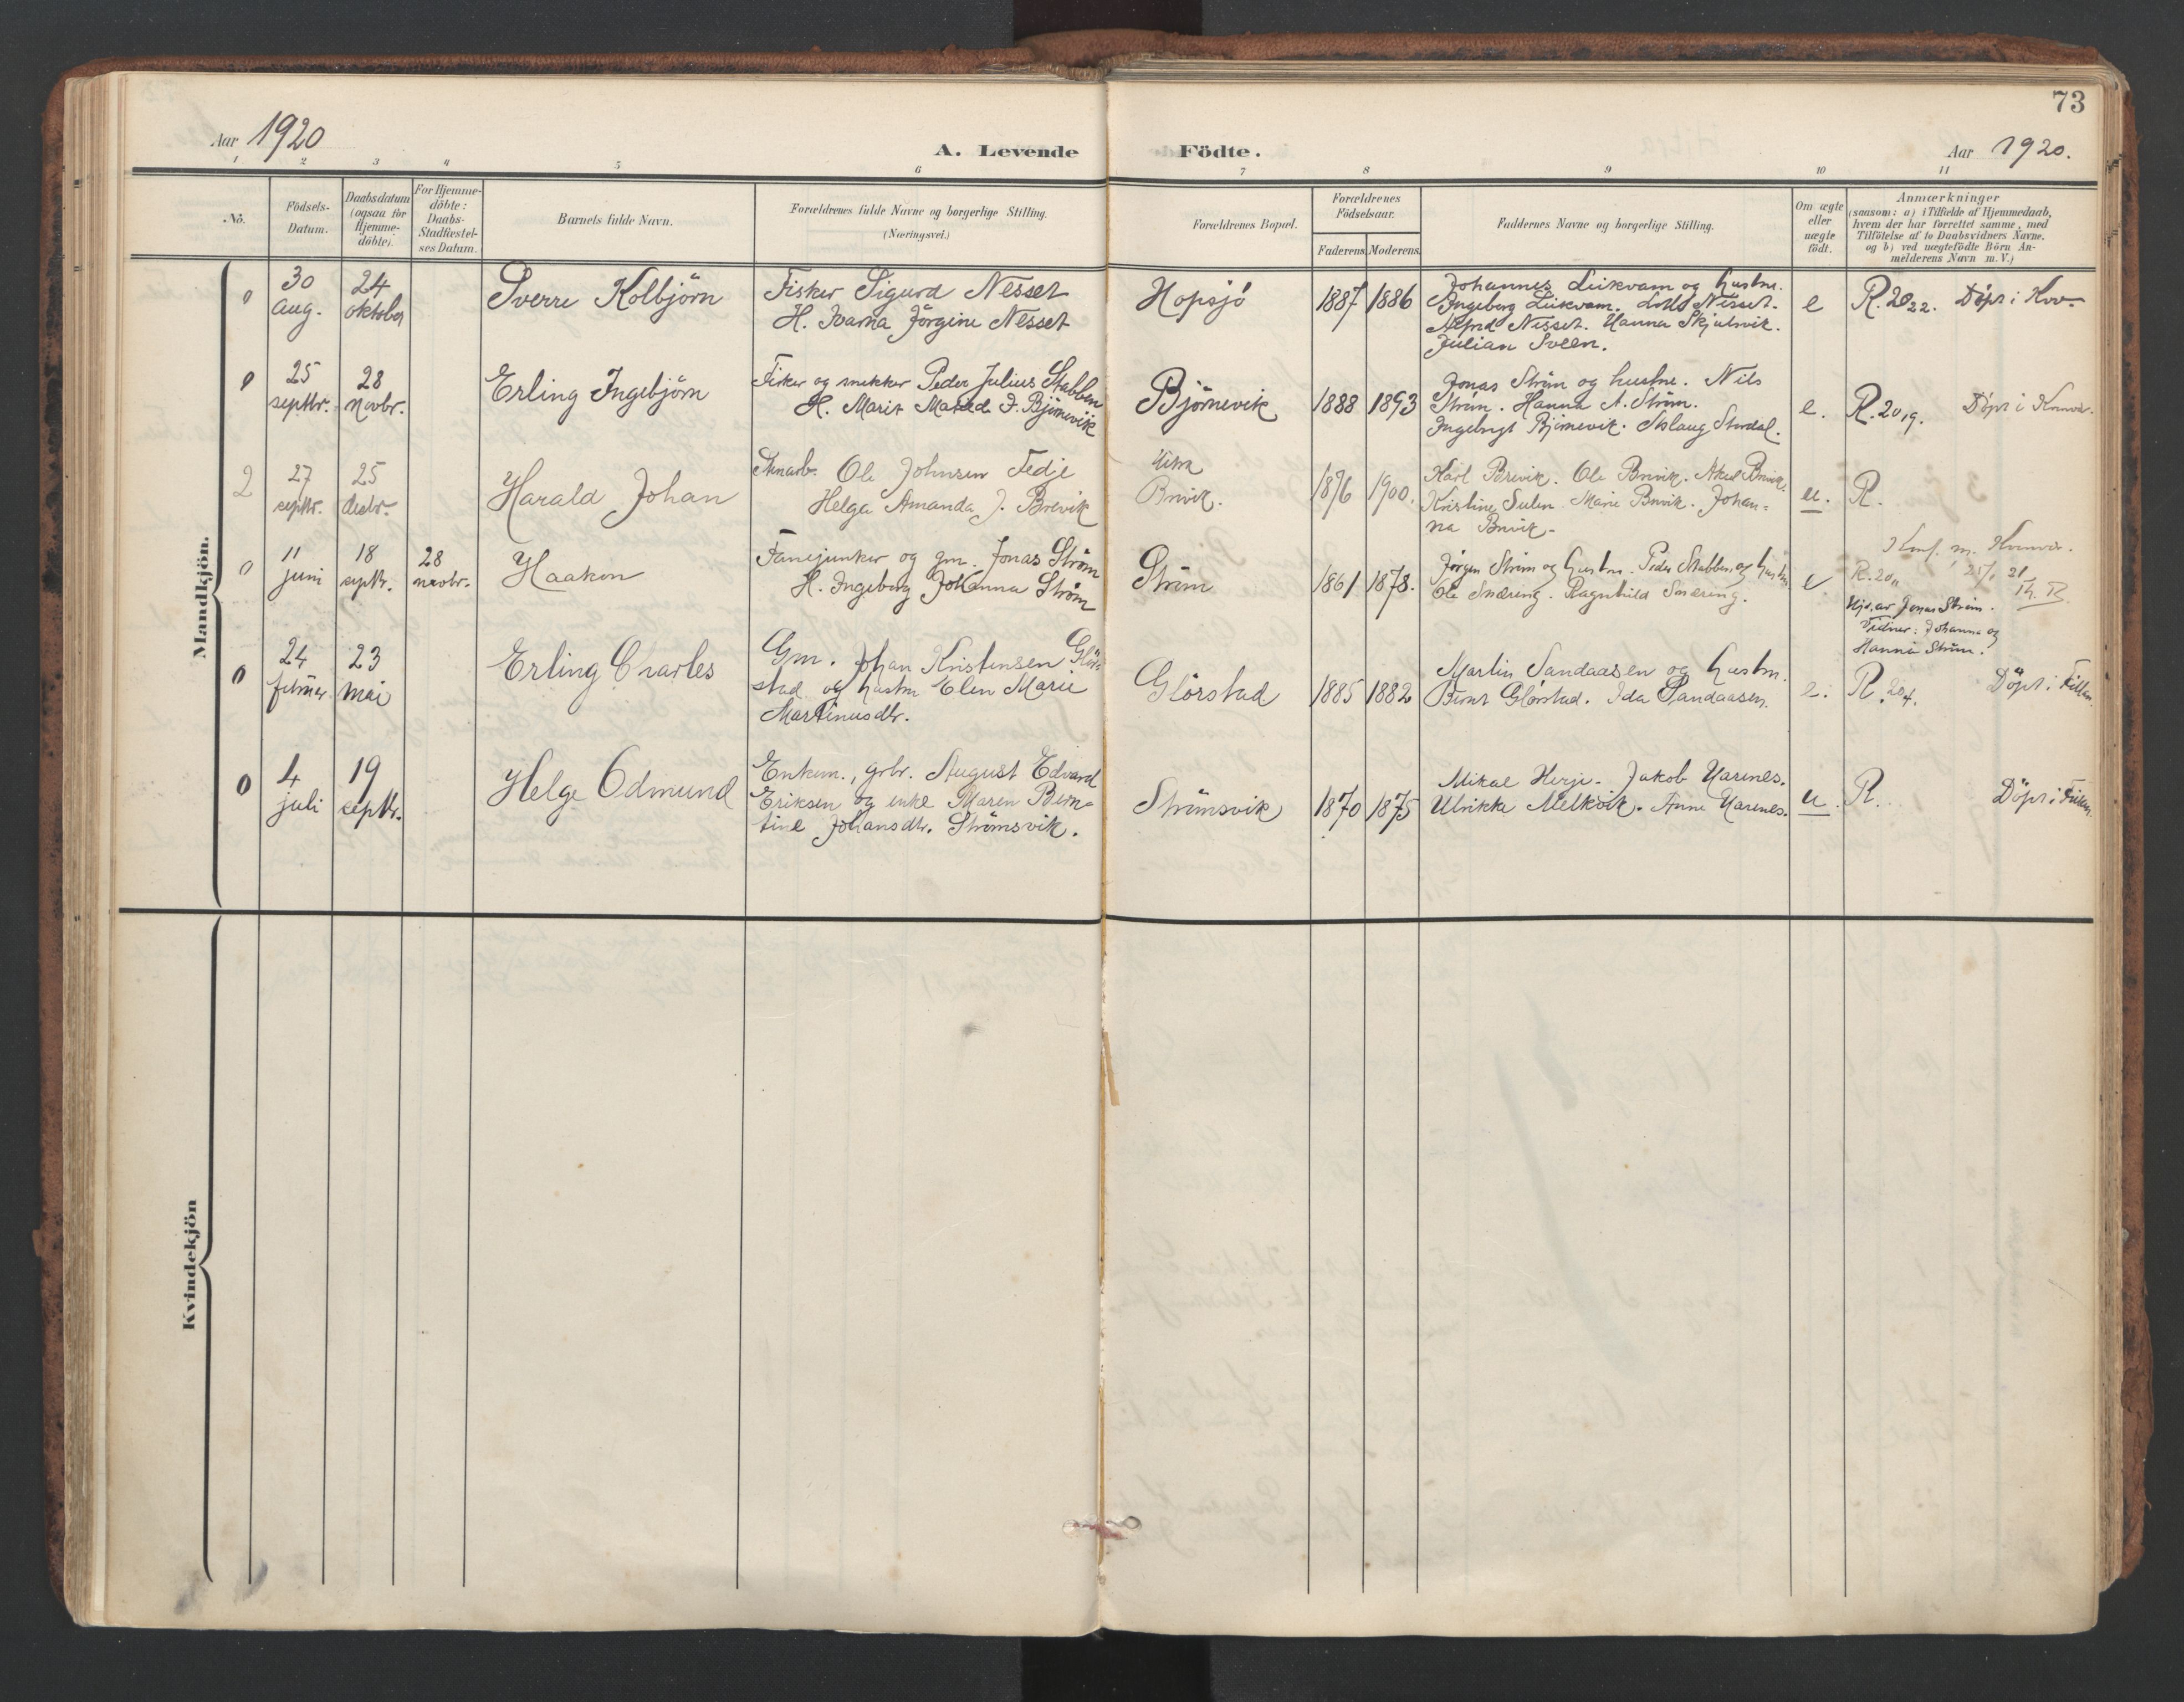 73
Aar 1920
A. Levende Födte.
Aar 1920.
1 2 3 4 5 6 7 8 9 10 11
No.
Födsels-
Datum.
Daabsdatum
(ogsaa for
Hjemme-
döbte).
For Hjemme-
döbte:
Daabs-
Stadfæstel-
ses Datum.
Barnets fulde Navn.
Forældrenes fulde Navne og borgerlige Stilling.
(Næringsvei.)
Forældrenes Bopæl.
Forældrenes
Födselsaar.
Faderens. Moderens.
Faddernes Navne og borgerlige Stilling.
Om ægte
eller
uægte
födt.
Anmærkninger
(saasom: a) i Tilfælde af Hjemmedaab,
hvem der har forrettet samme, med
Tilföielse af to Daabsvidners Navne.
og b) ved uægtefödte Börn An-
melderens Navn m. V.)
Mandkjön.
0
30
aug.
24
oktober
Sverre Kolbjörn
Fisker Sigurd Nesset
H. Ivarna Jörgine Nesset
Hopsjö
1887 1886
Johannes Leikvam og hustru.
Ingeborg Leikvam. Nesset.
Alfred Nesset. Hanna Skjulsvik.
Julian Sveen.
e
R. 20 22. Döpt i Kv-
0
25
septbr.
28
novbr.
Erling Ingebjörn
Fisker og snekker Peder Julius Stabben
H. Marit J. Björnevik
Björnevik
1888 1893
Jonas Ström og hustru. Nils
Ström. Hanna A. Ström.
Ingebrigt Björnevik. Aslaug Stordal.
e.
R. 20 19. Döpt i Kvenvær.
2
27
septbr.
25
decbr.
Harald Johan
Ole Johnsen Fedje
Helga Amanda J. Brevik
Hitra
Brevik.
1876 1900.
Karl Brevik. Ole Brevik. Aksel Brevik.
Kristine Sulen. Marie Brevik. Johan=
na Brevik-
u.
R.
0
11
juni
18
septbr.
28
novbr.
Haakon
Fanejunker og gm. Jonas Ström
H. Ingeborg Johanna Ström
Ström
1861 1878.
Jørgen Ström og hustru. Peder Stabben og hustru
Ole Snæring. Ragnhild Snæring.
e
Konf. m. Kvenvær.
R. 20
Hjd. av Jonas Ström.
Vidner: Johanna og
Hanna Ström.
0
24
februar
23
mai
Erling Charles
Gm. Johan Kristensen Glör=
stad og hustru Elen Marie
Martinusdtr.
Glörstad
1885 1882
Martin Sandaasen og hustru.
Bernt Glörstad. Ida Sandaasen.
e.
R. 20 4. Döpt i Fillan.
0
4
juli
19
septbr.
Helge Odmund
Enkem., grbr. August Edvard
Eriksen og enke Maren Bern=
tine Johansdtr. Strömsvik.
Strömsvik
1870 1875
Mikal Herje. Jakob Uarenes.
Ulrikke Melkvik. Anne Uarenes.
u.
R. Döpt i Fillan.
Kvindekjön